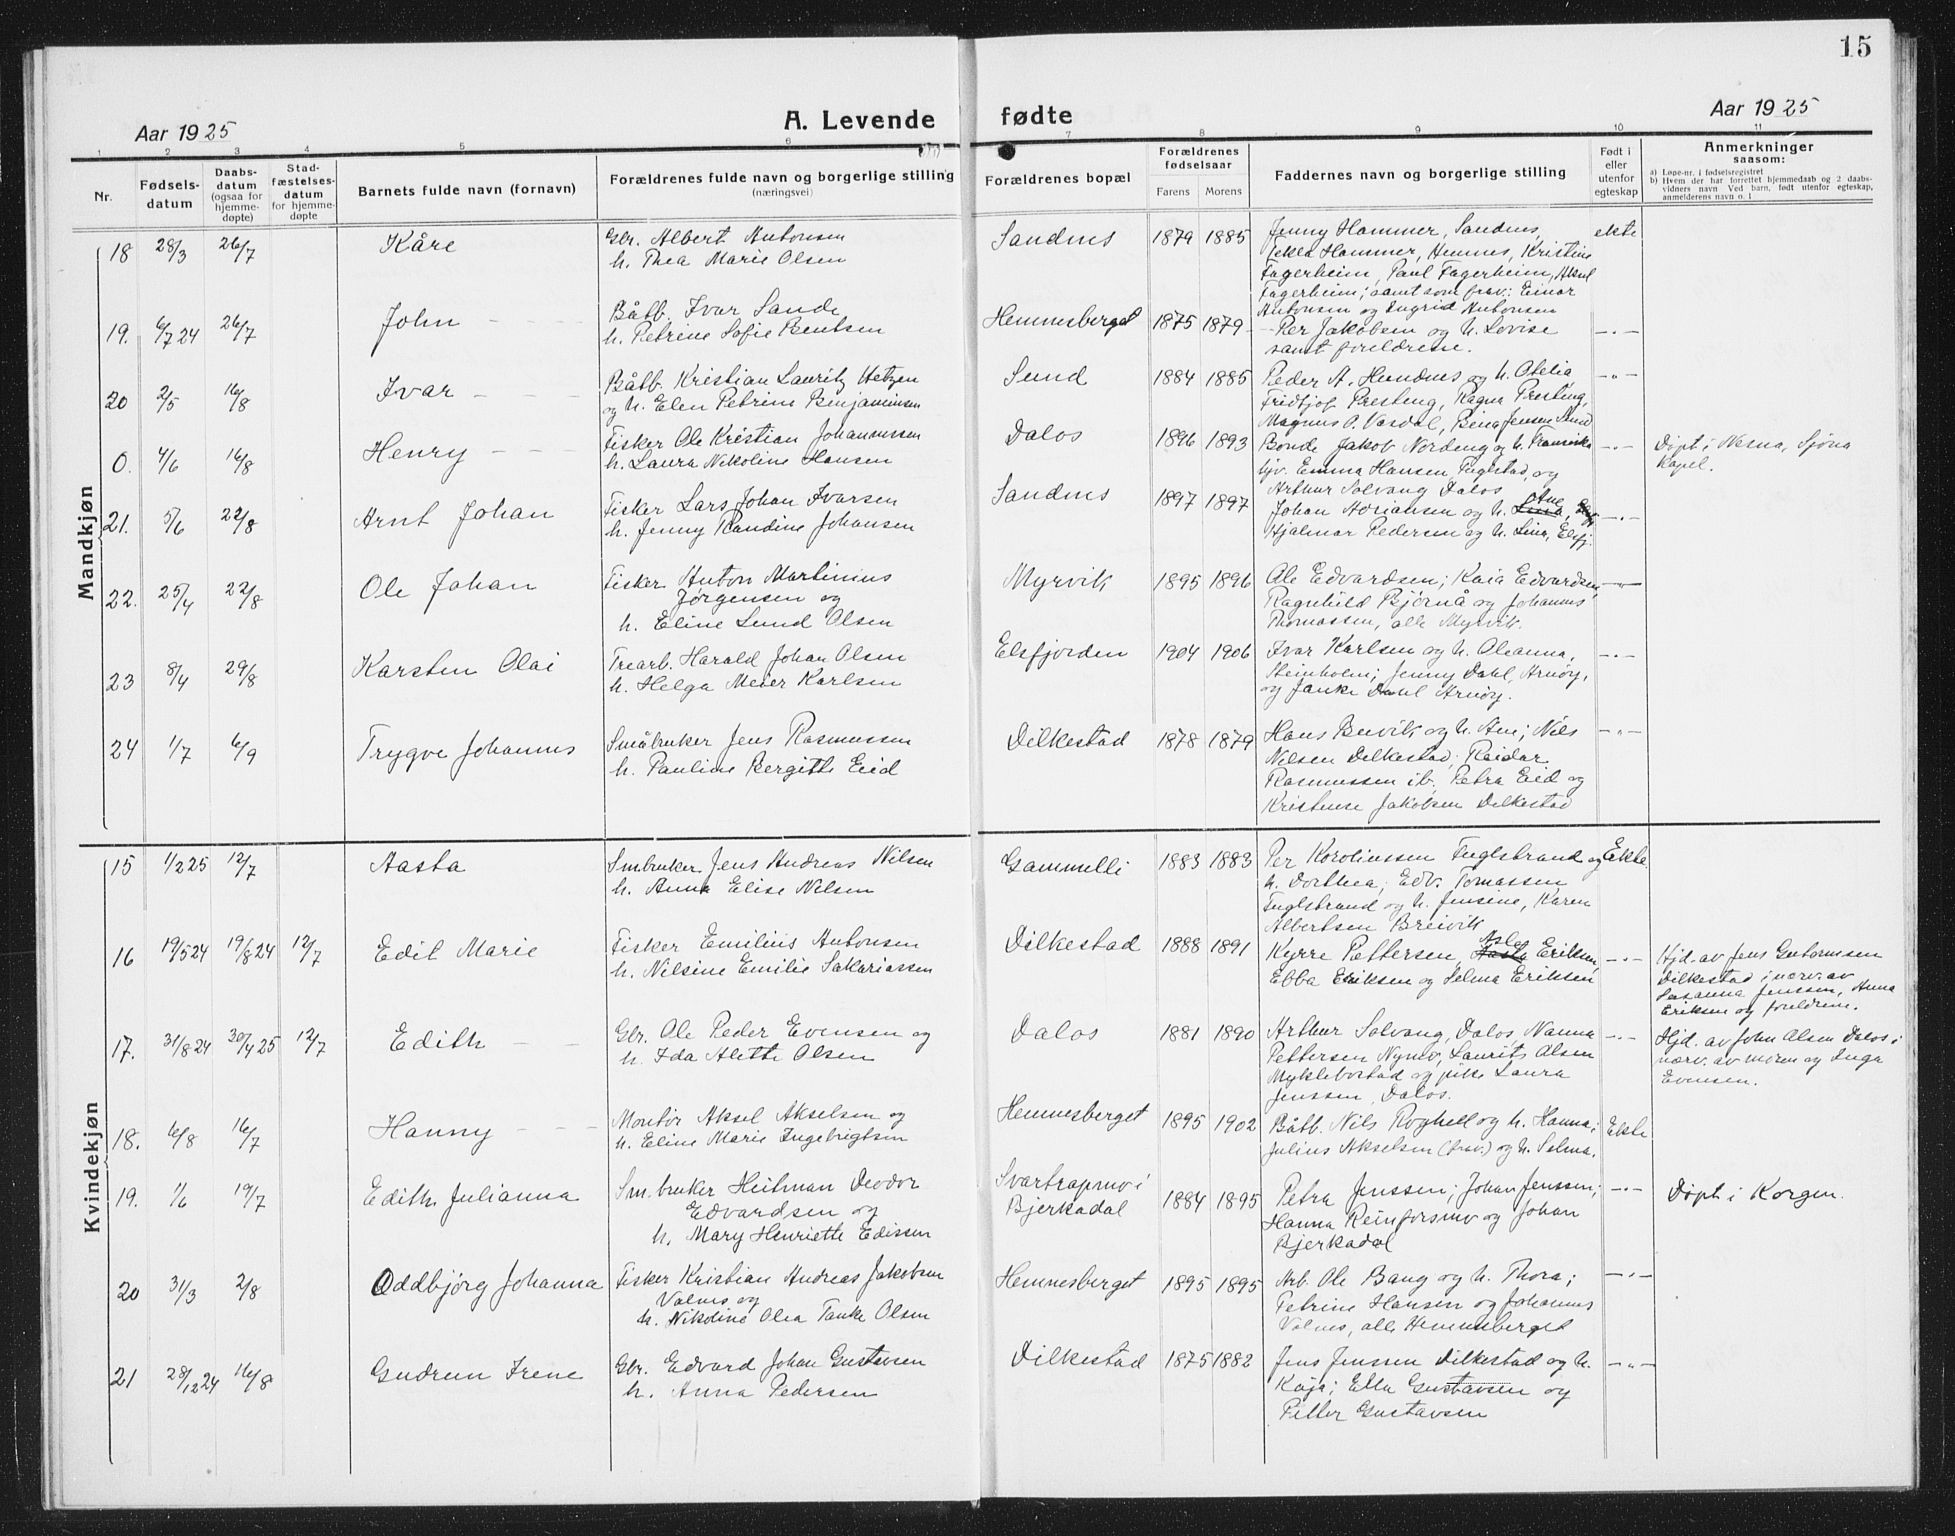 15
Aar 1925
A. Levende
fødte
Aar 1925
1 2 3 4 5 6 7 8 9 10 11
Nr.
Fødsels-
datum
Daabs-
datum
(ogsaa for
hjemme-
døpte)
Stad-
fæstelses-
datum
for hjemme-
døpte
Barnets fulde navn (fornavn)
Forældrenes fulde navn og borgerlige stilling
(næringsvei)
Forældrenes bopæl
Forældrenes
fødselsaar
Farens Morens
Faddernes navn og borgerlige stilling
Født i
eller
utenfor
egteskap
Anmerkninger
saasom:
a) Løpe-nr. i fødselsregistret
b) Hvem der har forrettet hjemmedaab og 2 daabs-
vidners navn Ved barn, født utenfor egteskap,
anmelderens navn o. l
Mandkjøn
18 28/3 26/7 Kåre
Gbr. Albert Antonsen
h. Thea Marie Olsen
Sandnes 1879 1885
Jenny Hammer, Sandnes,
Tekla Hammer, Hemnes, Kristine
Fagerheim, Paul Fagerheim, Aksel
Fagerheim; samt som frav: Einar
Antonsen og Ingrid Antonsen
ekte
19. 6/7 24 26/7 John
Båtb. Ivar Sande
h. Petrine Sofie Bentsen
Hemnesberget 1875 1879
Per Jakobsen og h. Lovise
samt foreldrene.
-"-
20 2/5 16/8 Ivar
Båtb. Kristian Lauritz Hetzen
og h. Elen Petrine Benjaminsen
Sund 1884 1885
Peder A. Hundnes og h. Otelia
Fridtjof Presteng, Ragna Presteng,
Magnus O. Vasdal, Bina Jensen Sund
-"-
0. 4/6 16/8 Henry
Fisker Ole Kristian Johannessen
h. Laura Nikoline Hansen
Dalos 1896 1893
Bonde Jakob Nordeng og h. Fransiska
hjv. Emma Hansen, Fuglstad, og
Arthur Solvang Dalos
-"-
Døpt i Nesna, Sjona
Kapel.
21. 5/6 22/8 Arnt Johan
Fisker Lars Johan Ivarsen
h. Jenny Randine Johansen
Sandnes 1897 1897
Johan Adriansen og h. Lina, Ane
Hjalmar Pedersen og h. Lina, Elsfj.
-"-
22. 25/4 22/8 Ole Johan
Fisker Anton Martinius
Jørgensen og
h. Eline Lund Olsen
Myrvik 1895 1896
Ole Edvardsen; Kaia Edvardsen
Ragnhild Bjørnå og Johannes
Thomassen, alle Myrvik.
-"-
23 8/4 29/8 Karsten Olai
Trearb. Harald Johan Olsen
h. Helga Meier Karlsen
Elsfjorden 1904 1906
Ivar Karlsen og h. Oleanna,
Steinholm; Jenny Dahl, Arnøy,
og Janke Dahl Arnøy.
-"-
24 1/7 6/9 Trygve Johannes
Småbruker Jens Rasmussen
h. Pauline Bergitte Eid
Dilkestad 1878 1879
Hans Buvik og h. Ane; Nils
Nilsen Dilkestad; Reidar
Rasmussen ib. Petra Eid og
Kristense Jakobsen Dilkestad
-"-
Kvindekjøn
15 1/2 25 12/7 Aasta
Smbruker Jens Andreas Nilsen
h. Anna Elise Nilsen
Gammelli 1883 1883
Per Karoliussen Fuglstrand og
h. Dorthea; Edv. Tomassen
Fuglstrand og h. Jensine, Karen
Albertsen Breivik
Ekte
16 19/5 24 19/8 24 12/7 Edit Marie
Fisker Emilius Antonsen
h. Nilsine Emilie Sakariassen
Dilkestad 1888 1891
Kyrre Pettersen, Aasta Asle Eriksen,
Ebba Eriksen og Selma Eriksen
-"-
Hjd. av Jens Guttormsen
Dilkestad i nærv. av
Susanna Jenssen, Anna
Eriksen og foreldren.
17. 31/8 24 30/4 25 12/7 Edith
Gbr. Ole Peder Evensen og
h. Ida Alette Olsen
Dalos 1881 1890
Arthur Solvang, Dalos Nanna
Pettersen Nymo, Laurits Olsen
Myklebostad og pike Laura
Jenssen, Dalos.
-"-
Hjd. av John Olsen Dalos i
nærv. av moren og Inga
Evensen.
18. 6/8 16/7 Hanny
Montør Aksel Akselsen og
h. Eline Marie Ingebrigtsen
Hemnesberget 1895 1902
Båtb. Nils Roghell og h. Hanna;
Julius Akselsen (frav.) og h. Selma.
Ekte
19. 1/6 19/7 Edith Julianna
Sm.bruker Heitman Deodor
Edvardsen og
h. Mary Henriette Edissen
Svartrapmo i
Bjerkadal 1884 1895
Petra Jenssen; Johan Jenssen;
Hanna Reinforsmo og Johan
Bjerkadal
-"-
Døpt i Korgen.
20 31/3 2/8 Oddbjörg Johanna
Fisker Kristian Andreas Jakobsen
Valnes og
h. Nikoline Olea Tanke Olsen
Hemnesberget 1895 1895
Arb. Ole Bang og h. Thora;
Petrine Hansen og Johannes
Valnes, alle Hemnesberget
-"-
21 28/12 24 16/8 Gudrun Irene
Gbr. Edvard Johan Gustavsen
h. Anna Pedersen
Dilkestad 1875 1882
Jens Jenssen Dilkestad og h.
Kaja; Ella Gustavsen og
Petter Gustavsen
-"-